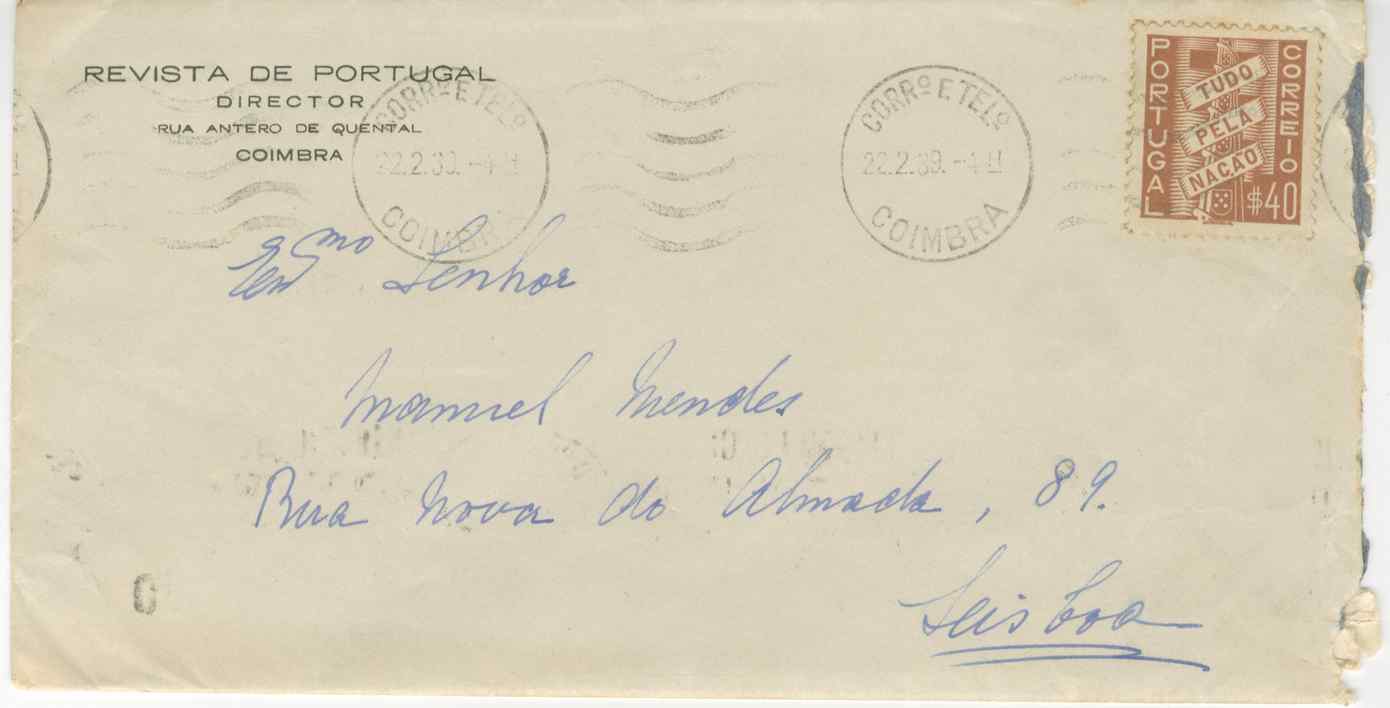 REVISTA DE PORTUGAL
DIRECTOR
RUA ANTERO DE QUENTAL
COIMBRA
CORRº E TELº
22.2.39.-4 H
COIMBRA
CORRº E TELº
22.2.39.-4 H
COIMBRA
PORTUGAL
CORREIO
TUDO
PELA
NAÇÃO
$40
Exmo Senhor
Manuel Mendes
Rua Nova do Almada, 89.
Lisboa